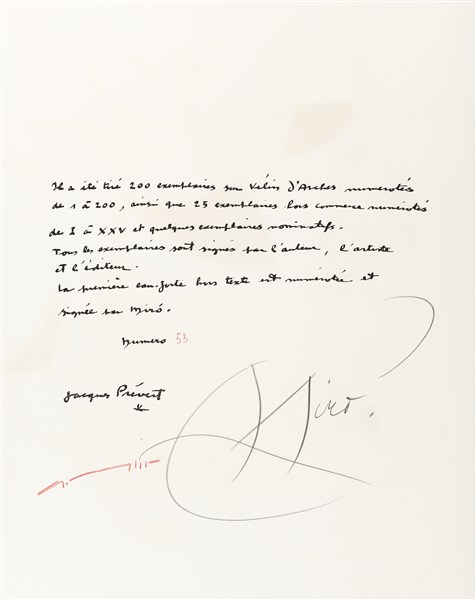 Il a été tiré 200 exemplaires sur Vélin d'Arches numérotés
de 1 à 200, ainsi que 25 exemplaires hors commerce numérotés
de I à XXV et quelques exemplaires nominatifs.
Tous les exemplaires sont signés par l'auteur, l'artiste
et l'éditeur.
La première eau-forte hors texte est numérotée et
signée par Miró.
Numéro 53
Jacques Prévert
Miró.